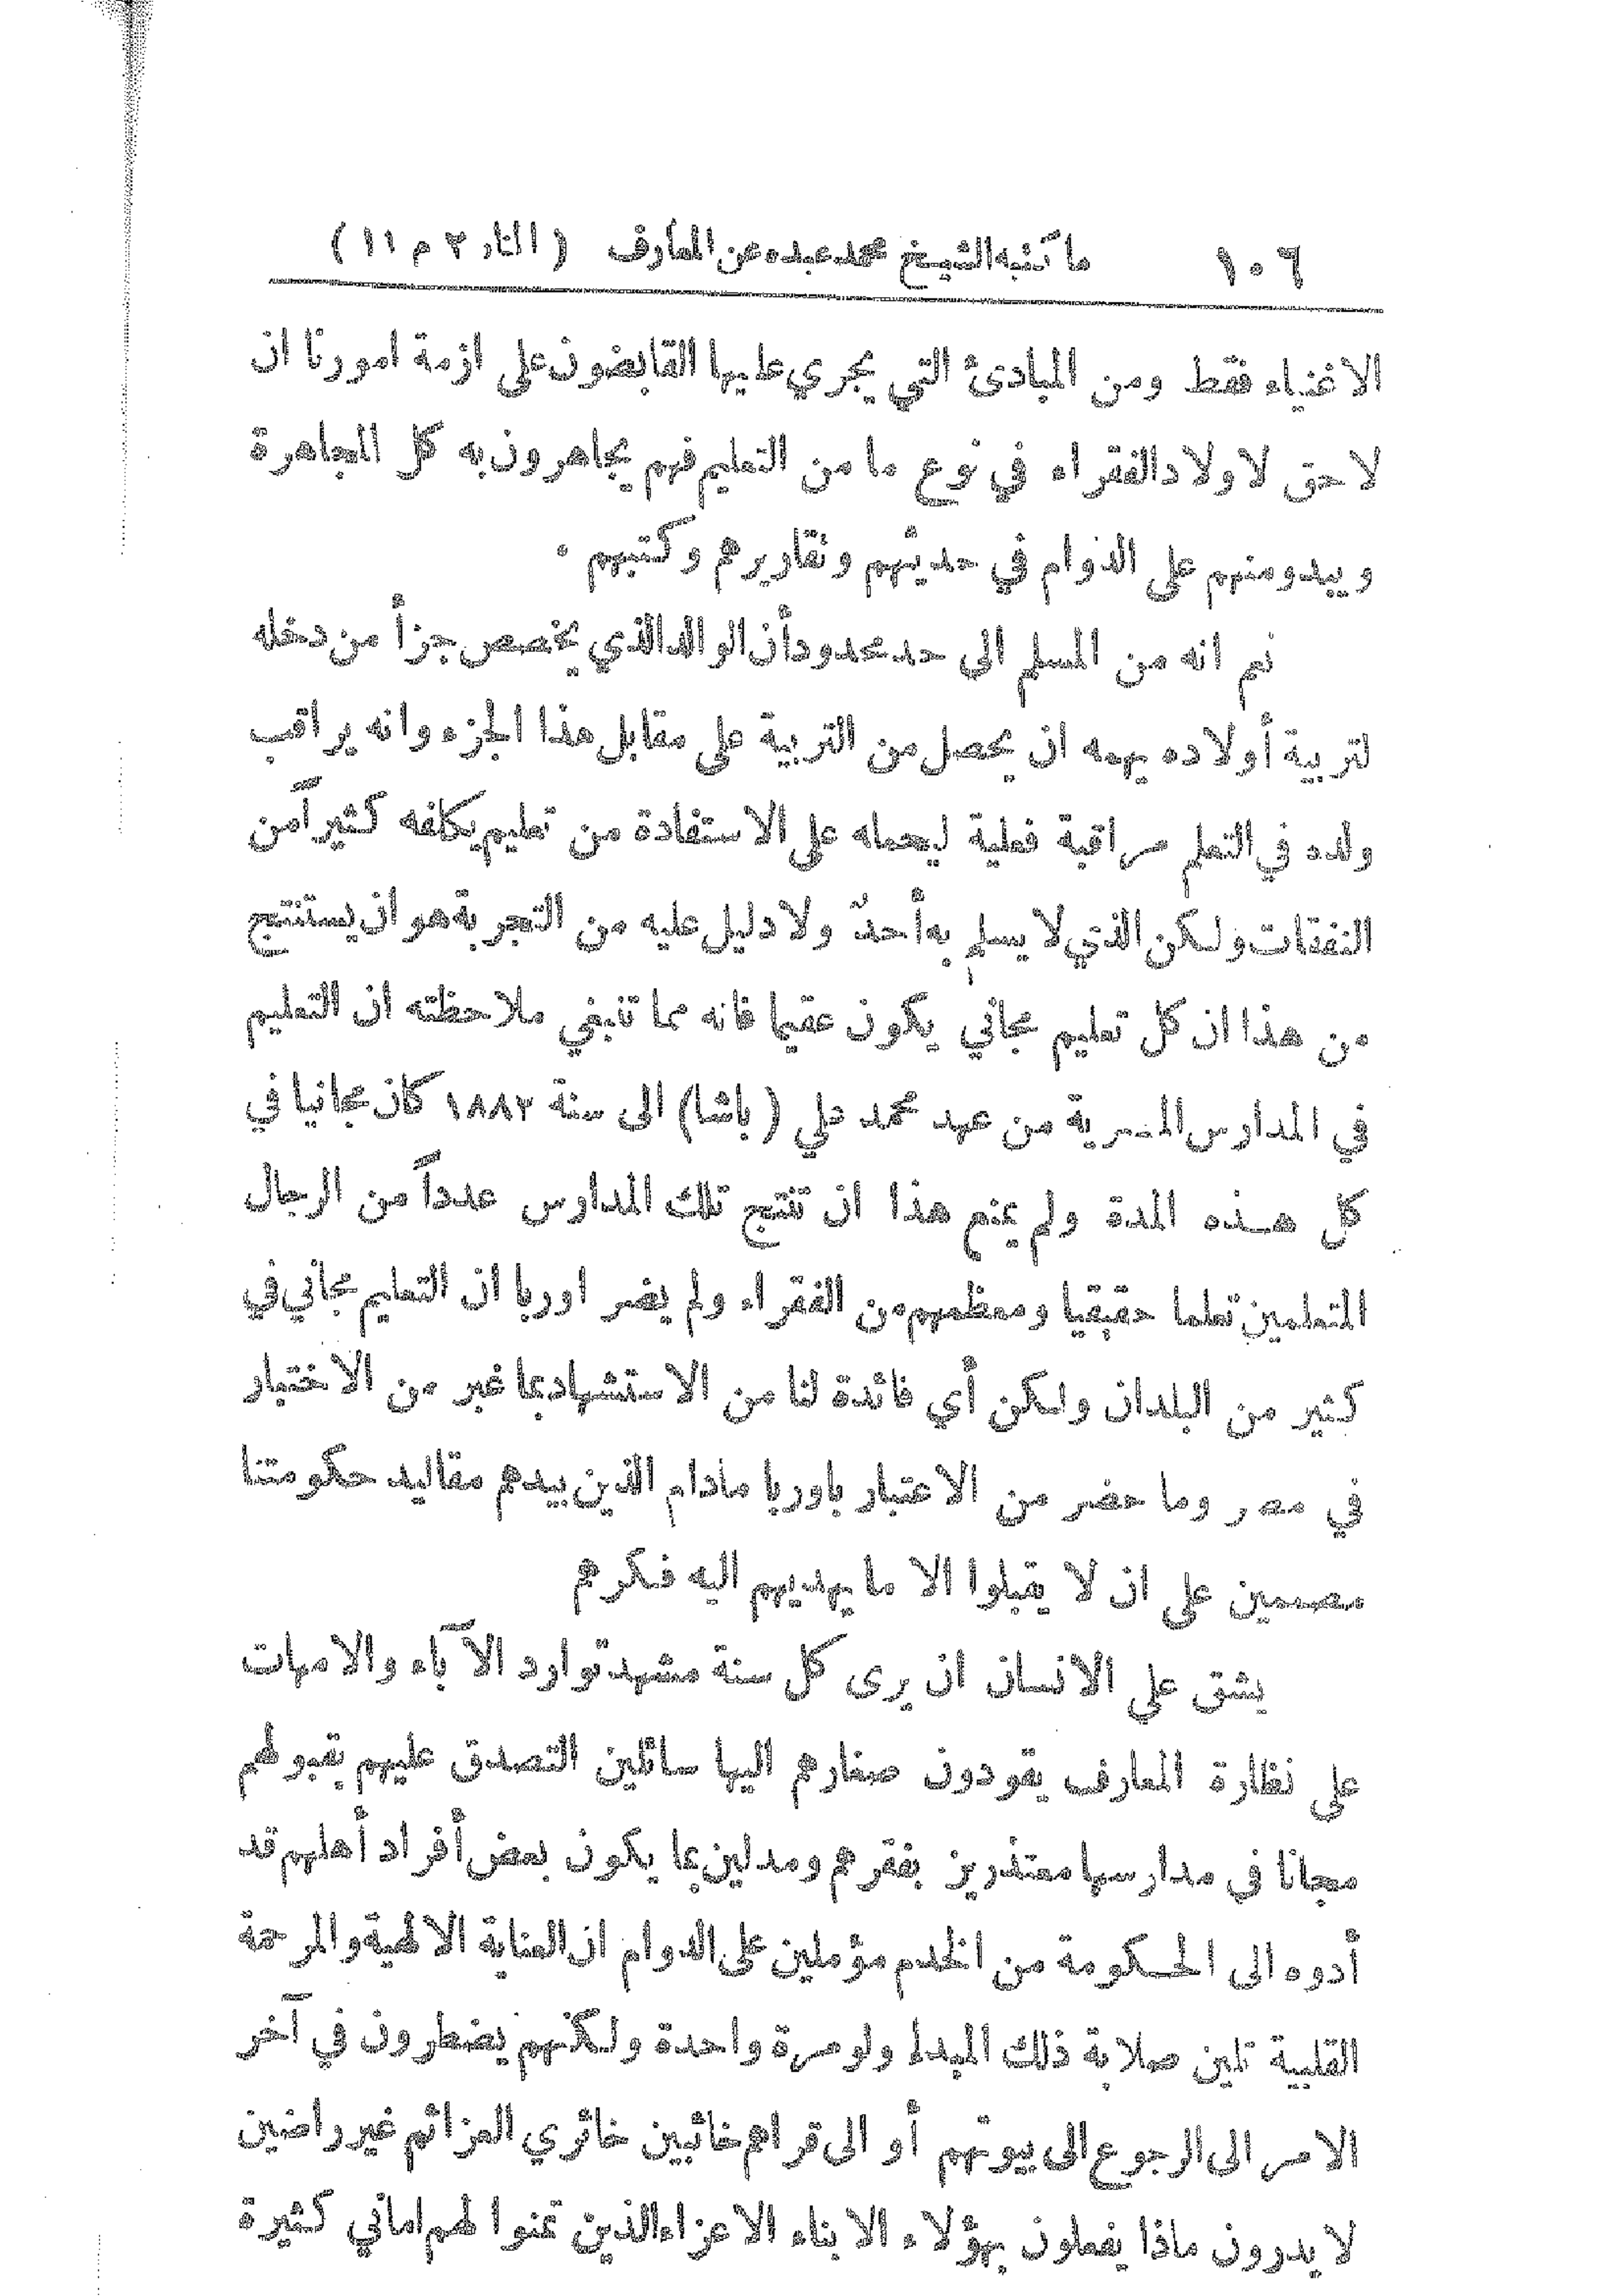 ١٠٦ ما كتبه الشيخ محمد عبده عن المعارف (المنار ٢ م ١١)
الاغنياء فقط ومن المبادئ التي يجري عليها القابضون على ازمة امورنا ان
لا حق لاولاد الفقراء في نوع ما من التعليم فهم يجاهرون به كل المجاهرة
ويبدو منهم على الدوام في حديثهم وتقاريرهم وكتبهم ٠
نعم انه من المسلم الى حد محدود أن الوالد الذي يخصص جزأ من دخله
لتربية أولاده يهمه ان يحصل من التربية على مقابل هذا الجزء وانه يراقب
ولده في التعلم مراقبة فعلية ليحمله على الاستفادة من تعليم يكلفه كثيراً من
النفقات ولكن الذي لا يسلم به أحدٌ ولا دليل عليه من التجربة هو ان يستنتج
من هذا ان كل تعليم مجاني يكون عقيما فانه مما تنبغي ملاحظته ان التعليم
في المدارس المصرية من عهد محمد علي (باشا) الى سنة ١٨٨٢ كان مجانيا في
كل هذه المدة ولم يمنع هذا ان تنتج تلك المدارس عدداً من الرجال
المتعلمين تعلما حقيقيا ومعظمهم من الفقراء ولم يضر اوربا ان التعليم مجاني في
كثير من البلدان ولكن أي فائدة لنا من الاستشهاد بما غبر من الاختبار
في مصر وما حضر من الاعتبار باوربا مادام الذين بيدهم مقاليد حكومتنا
مصممين على ان لا يقبلوا الا ما يهديهم اليه فكرهم
يشق على الانسان ان يرى كل سنة مشهد توارد الآباء والامهات
على نظارة المعارف يقودون صغارهم اليها سائلين التصدق عليهم بقبولهم
مجانا في مدارسها معتذرين بفقرهم ومدلين بما يكون بعض أفراد أهلهم قد
أدوه الى الحكومة من الخدم مؤملين على الدوام ان العناية الالهية والمرحمة
القلبية تلين صلابة ذلك المبدا ولو مرة واحدة ولكنهم يضطرون في آخر
الامر الى الرجوع الى بيوتهم أو الى قراهم خائبين خائري العزائم غير راضين
لا يدرون ماذا يفعلون بهؤلاء الابناء الاعزاء الذين تمنوا لهم اماني كثيرة